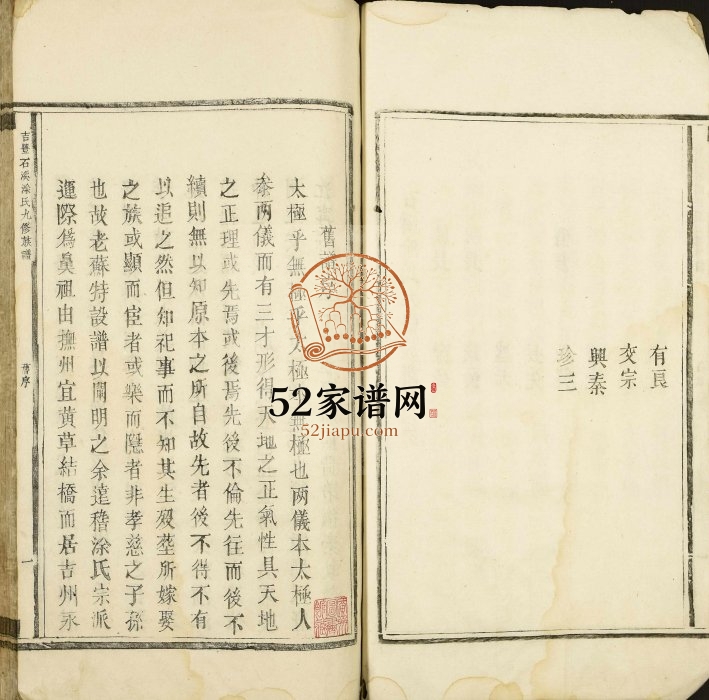 有良
文宗
興泰
珍三
舊譜序
太極乎無極乎太極本無極也两儀本太極人
叅两儀而有三才形得天地之正氣性具天地
之正理或先焉或後焉先後不倫先往而後不
續則無以知原本之所自故先者後不得不有
以追之然但知祀事而不知其生殁塟所嫁娶
之族或顯而宦者或樂而隱者非孝慈之子孫
也故老蘇特設譜以闡明之余遠稽涂氏宗派
運際爲鼻祖由撫州宜黄草結橋而居吉州永
吉豐石溪涂氏九修族譜
舊序
一
52家谱网
52jiapu.com